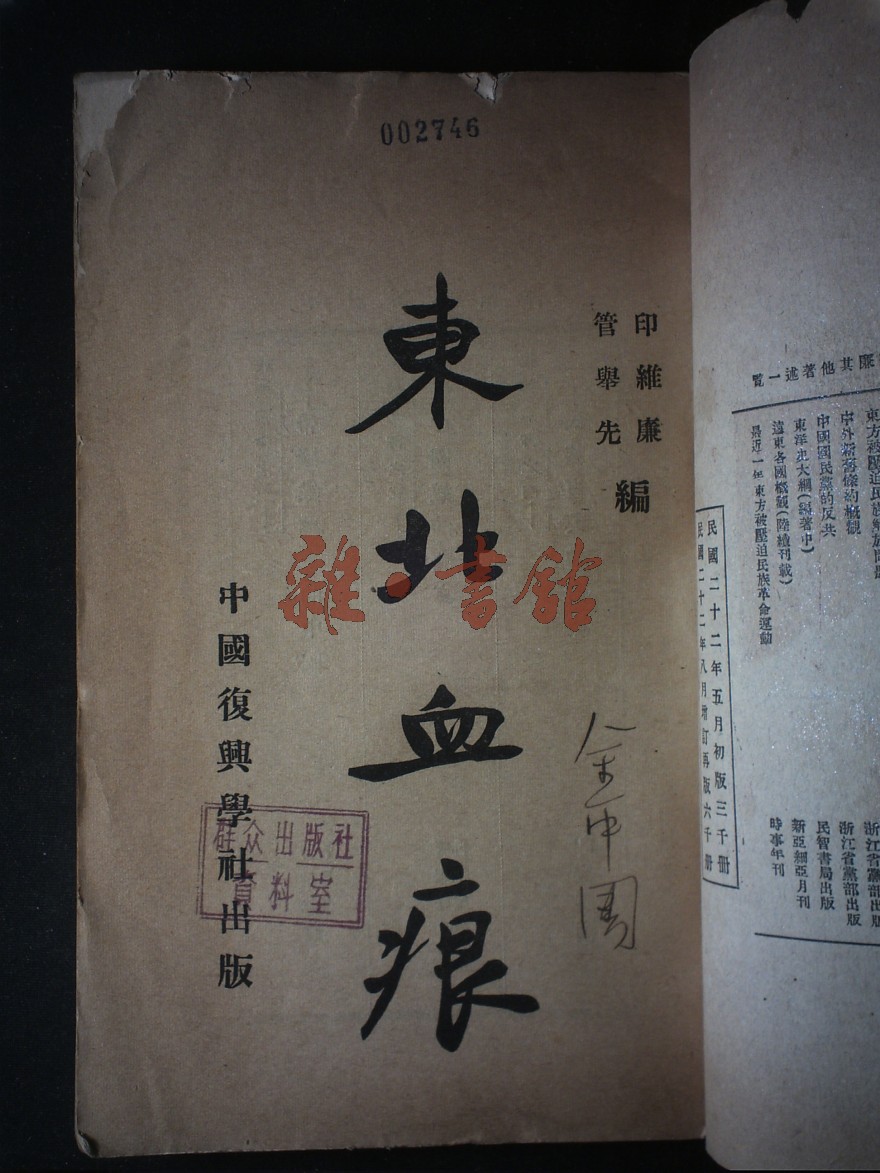 002746
印維廉
管舉先
編
東北血痕
中國復興學社出版
雜·書館
群众出版社
資料室
廉其他著述一覧
東方被壓迫民族解放問題
中外新舊條約概觀
中國國民黨的反共
東洋史大綱(編著中)
遠東各國概觀(陸續刊載)
最近一年東方被壓迫民族革命運動
浙江省黨部出版
浙江省黨部出版
民智書局出版
新亞細亞月刊
時事年刊
民國二十二年五月初版三千册
民國二十二年八月增訂再版六千册